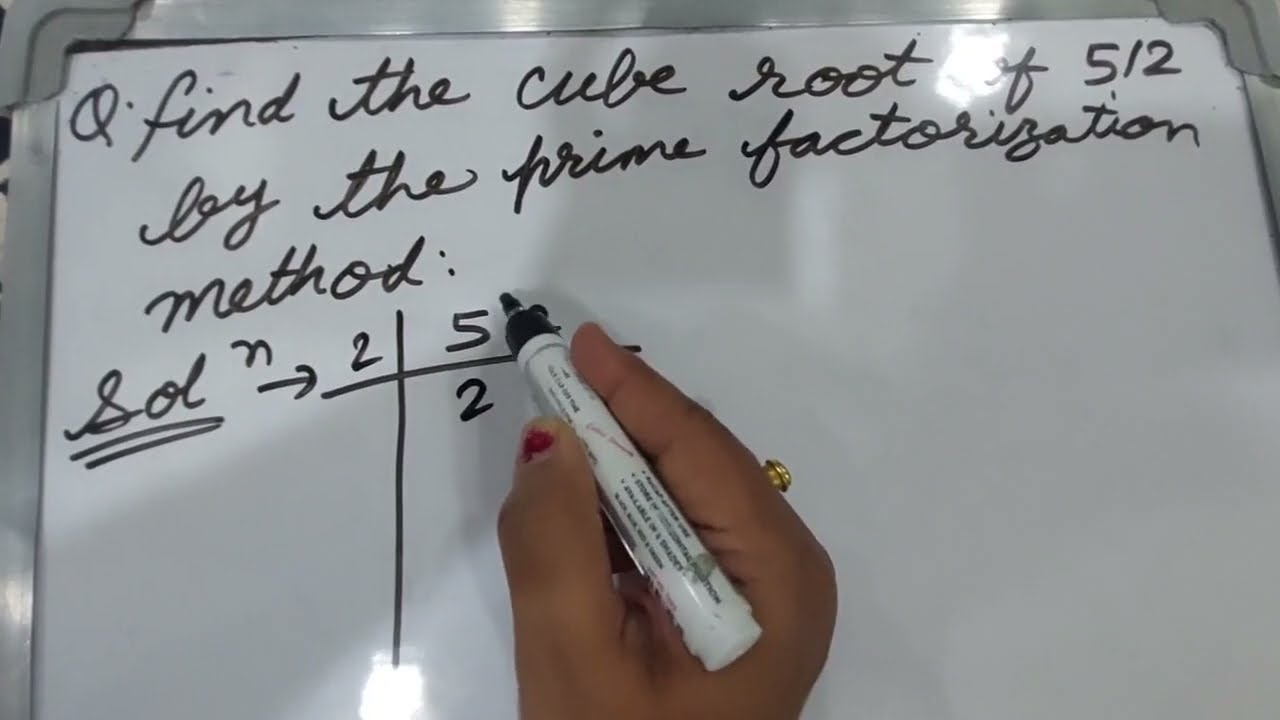 Q. find the cube root of 512
by the prime factorization
method:
Solⁿ → 2 | 5
2